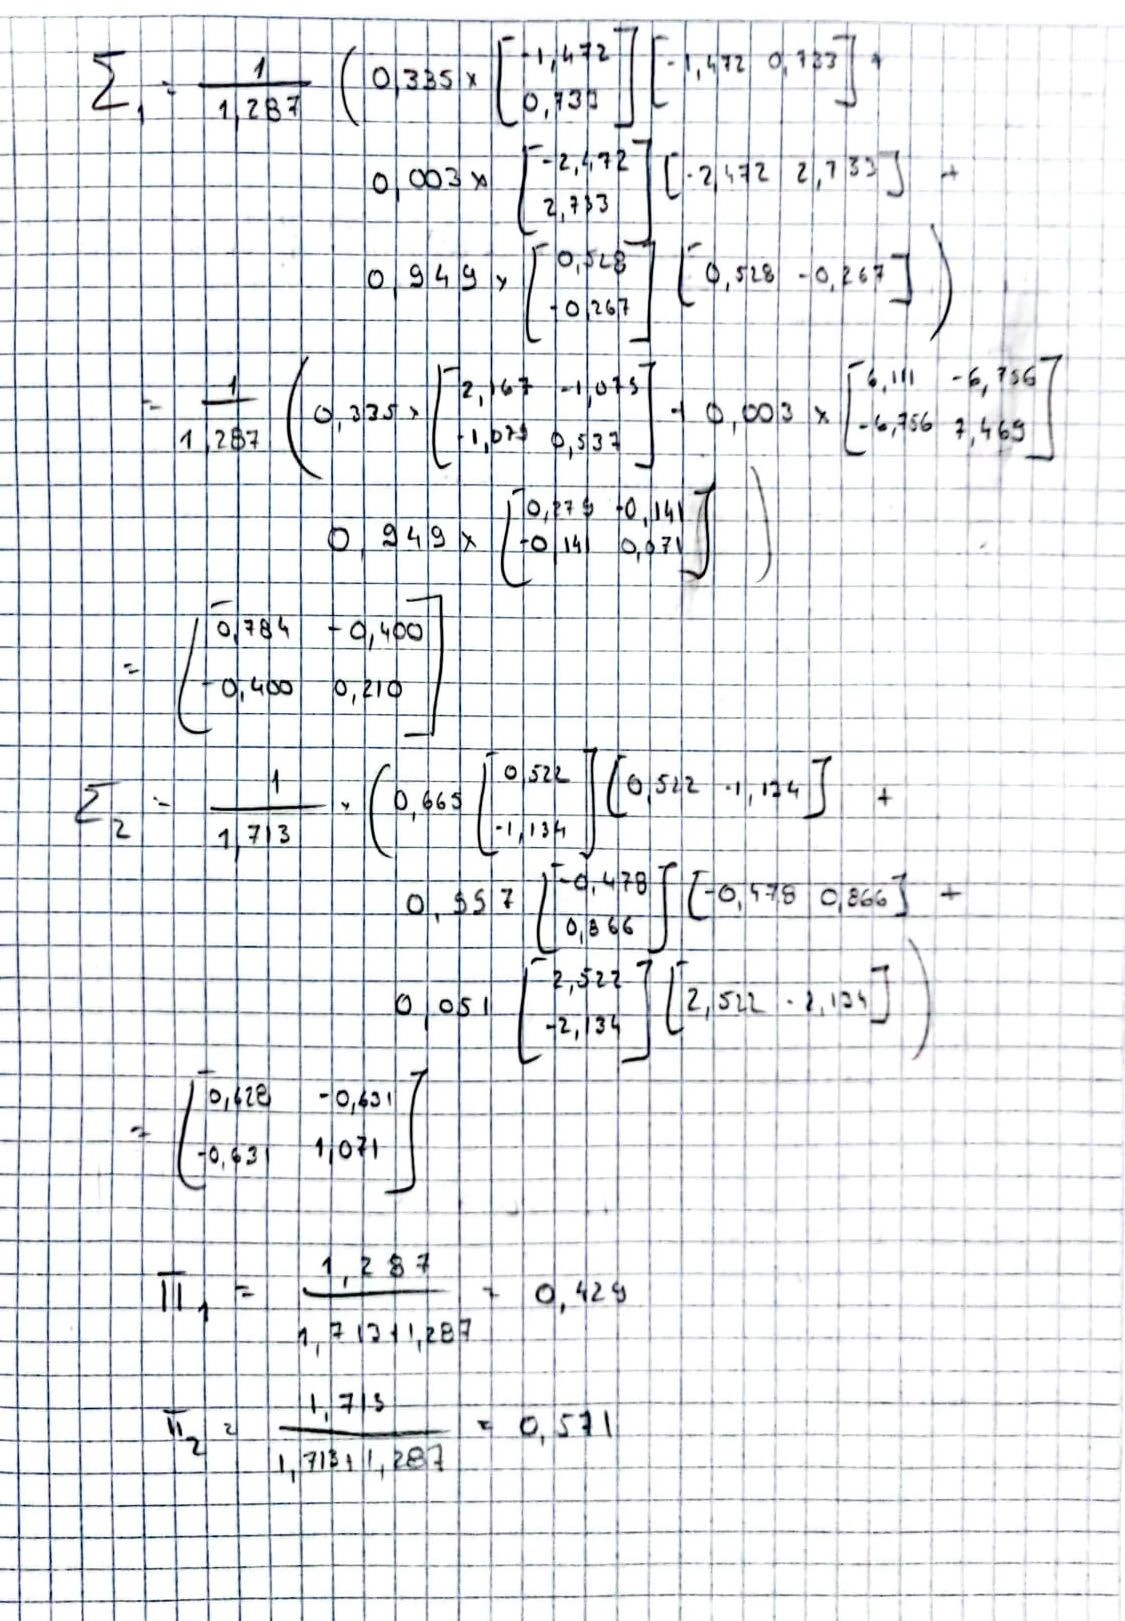 Σ₁ = 1/1,287 ( 0,335 × [-1,472 0,733] [-1,472 0,733] +
0,003 × [-2,472 2,733] [-2,472 2,733] +
0,949 × [0,528 -0,267] [0,528 -0,267] )
= 1/1,287 ( 0,335 × [2,167 -1,079 -1,079 0,537] + 0,003 × [6,111 -6,756 -6,756 7,469]
0,949 × [0,279 -0,141 -0,141 0,071] )
= [0,784 -0,400 -0,400 0,210]
Σ₂ = 1/1,713 × ( 0,665 [0,522 -1,134] [0,522 -1,134] +
0,997 [-0,478 0,866] [-0,478 0,866] +
0,051 [2,522 -2,134] [2,522 -2,134] )
= [0,628 -0,631 -0,631 1,071]
π₁ = 1,287/1,713+1,287 = 0,429
π₂ = 1,713/1,713+1,287 = 0,571